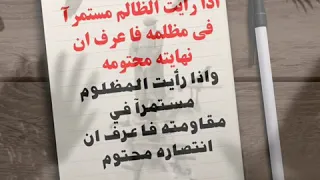 اذا رأيت الظالم مستمرآ
في مظلمه فاعرف ان
نهايته محتومه
واذا رأيت المظلوم
مستمرآ في
مقاومته فاعرف ان
انتصاره محتوم